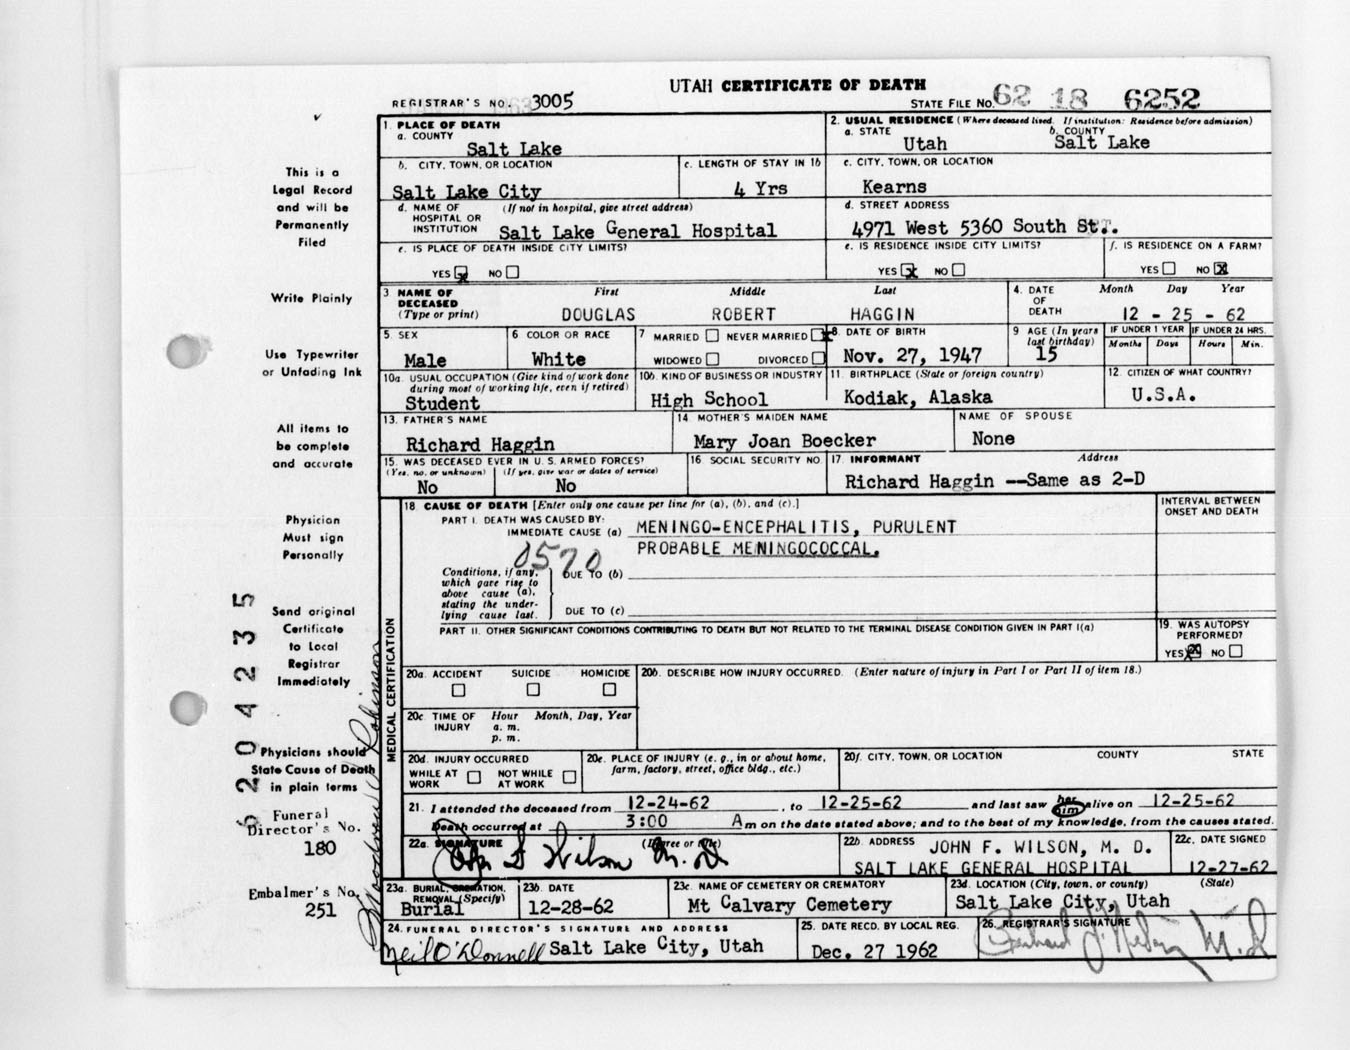 UTAH CERTIFICATE OF DEATH
REGISTRAR'S NO. 3005
STATE FILE NO. 62 18 6252
This is a
Legal Record
and will be
Permanently
Filed
Write Plainly
Use Typewriter
or Unfading Ink
All items to
be complete
and accurate
Physician
Must sign
Personally
Send original
Certificate
to Local
Registrar
Immediately
Physicians should
State Cause of Death
in plain terms
Funeral
Director's No.
180
Embalmer's No.
251
204235
1. PLACE OF DEATH
a. COUNTY
Salt Lake
2. USUAL RESIDENCE (Where deceased lived. If institution: Residence before admission)
a. STATE
Utah
b. COUNTY
Salt Lake
b. CITY, TOWN, OR LOCATION
Salt Lake City
c. LENGTH OF STAY IN 1b
4 Yrs
c. CITY, TOWN, OR LOCATION
Kearns
d. NAME OF (If not in hospital, give street address)
HOSPITAL OR
INSTITUTION Salt Lake General Hospital
d. STREET ADDRESS
4971 West 5360 South St.
e. IS PLACE OF DEATH INSIDE CITY LIMITS?
YES X NO
e. IS RESIDENCE INSIDE CITY LIMITS?
YES X NO
f. IS RESIDENCE ON A FARM?
YES NO X
3 NAME OF DECEASED
(Type or print)
First Middle Last
DOUGLAS ROBERT HAGGIN
4. DATE OF DEATH
Month Day Year
12 - 25 - 62
5 SEX
Male
6 COLOR OR RACE
White
7 MARRIED NEVER MARRIED X
WIDOWED DIVORCED
8. DATE OF BIRTH
Nov. 27, 1947
9 AGE (In years last birthday)
15
IF UNDER 1 YEAR
Months Days
IF UNDER 24 HRS.
Hours Min.
10a. USUAL OCCUPATION (Give kind of work done
during most of working life, even if retired)
Student
10b. KIND OF BUSINESS OR INDUSTRY
High School
11. BIRTHPLACE (State or foreign country)
Kodiak, Alaska
12. CITIZEN OF WHAT COUNTRY?
U.S.A.
13. FATHER'S NAME
Richard Haggin
14 MOTHER'S MAIDEN NAME
Mary Joan Boecker
NAME OF SPOUSE
None
15. WAS DECEASED EVER IN U. S. ARMED FORCES?
(Yes, no, or unknown) (If yes, give war or dates of service)
No No
16 SOCIAL SECURITY NO.
17. INFORMANT Address
Richard Haggin --Same as 2-D
MEDICAL CERTIFICATION
18 CAUSE OF DEATH [Enter only one cause per line for (a), (b), and (c).]
INTERVAL BETWEEN
ONSET AND DEATH
PART I. DEATH WAS CAUSED BY:
IMMEDIATE CAUSE (a) MENINGO-ENCEPHALITIS, PURULENT
PROBABLE MENINGOCOCCAL.
0570
Conditions, if any,
which gave rise to
above cause (a),
stating the under-
lying cause last.
DUE TO (b)
DUE TO (c)
PART II. OTHER SIGNIFICANT CONDITIONS CONTRIBUTING TO DEATH BUT NOT RELATED TO THE TERMINAL DISEASE CONDITION GIVEN IN PART I(a)
19. WAS AUTOPSY
PERFORMED?
YES X NO
20a. ACCIDENT SUICIDE HOMICIDE
20b. DESCRIBE HOW INJURY OCCURRED. (Enter nature of injury in Part I or Part II of item 18.)
20c. TIME OF INJURY
Hour Month, Day, Year
a. m.
p. m.
20d. INJURY OCCURRED
WHILE AT WORK NOT WHILE AT WORK
20e. PLACE OF INJURY (e. g., in or about home,
farm, factory, street, office bldg., etc.)
20f. CITY, TOWN, OR LOCATION COUNTY STATE
21. I attended the deceased from 12-24-62, to 12-25-62 and last saw her him alive on 12-25-62
Death occurred at 3:00 A m on the date stated above; and to the best of my knowledge, from the causes stated.
22a. SIGNATURE (Degree or title)
John F Wilson M. D
22b. ADDRESS JOHN F. WILSON, M. D.
SALT LAKE GENERAL HOSPITAL
22c. DATE SIGNED
12-27-62
23a. BURIAL, CREMATION,
REMOVAL (Specify)
Burial
23b. DATE
12-28-62
23c. NAME OF CEMETERY OR CREMATORY
Mt Calvary Cemetery
23d. LOCATION (City, town, or county) (State)
Salt Lake City, Utah
24. FUNERAL DIRECTOR'S SIGNATURE AND ADDRESS
Neil O'Donnell Salt Lake City, Utah
25. DATE RECD. BY LOCAL REG.
Dec. 27 1962
26. REGISTRAR'S SIGNATURE
M.D